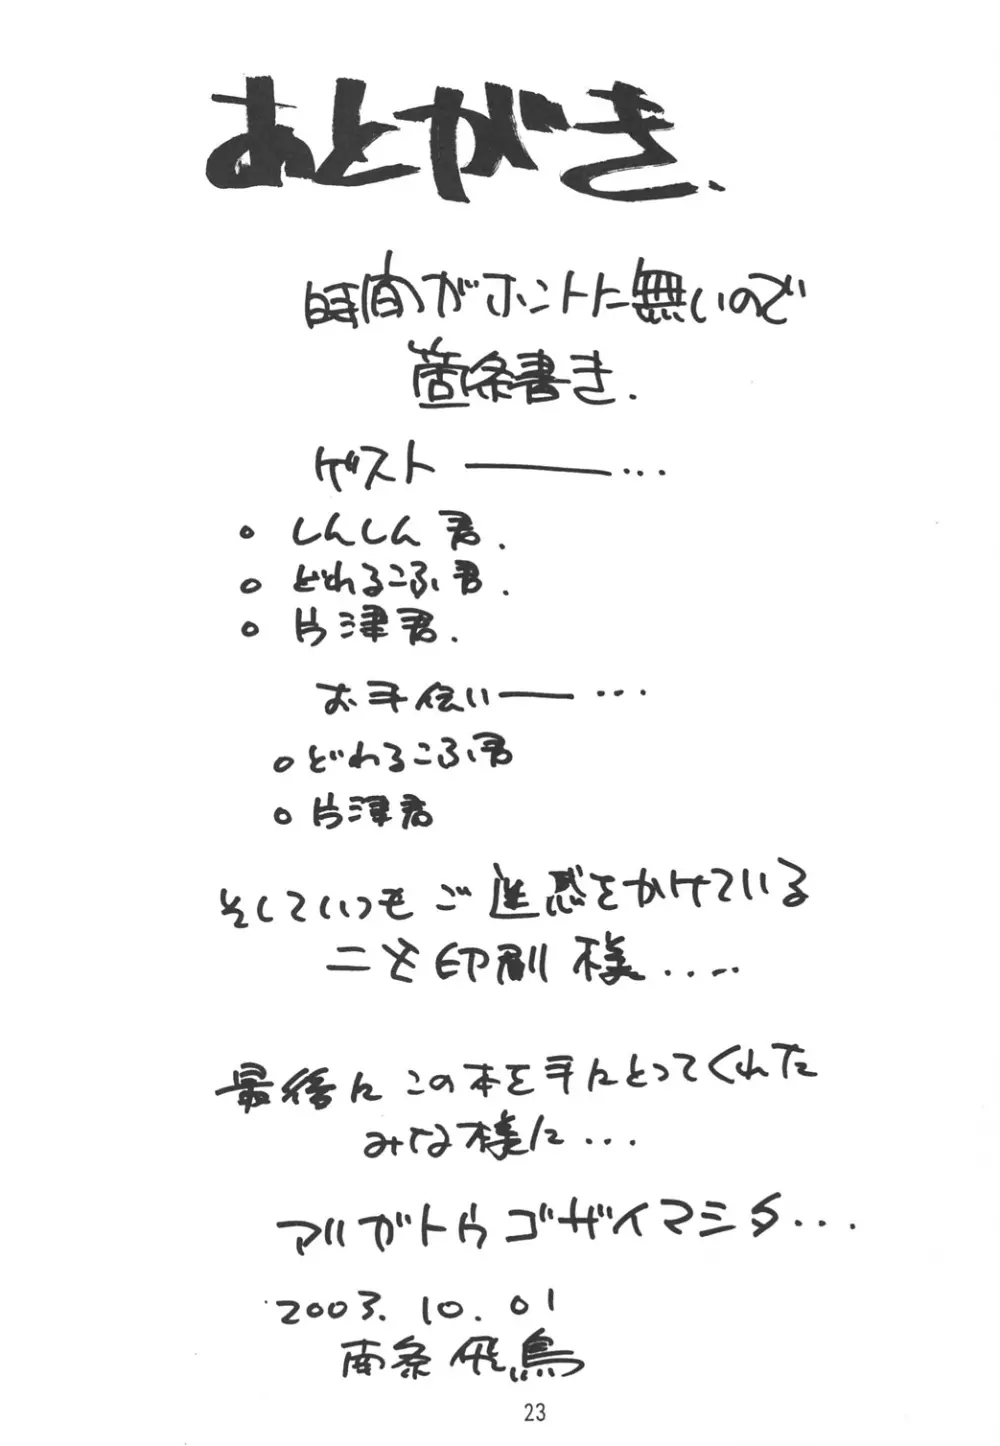 あとがき、
時間がホントに無いので
箇条書き.
ゲスト ―――...
○ しんしん君.
○ どれるこふ君.
○ 片津君.
お手伝い――...
○ どれるこふ君
○ 片津君
そしていつもご迷惑をかけている
ニと印刷様.....
最後に この本を手にとってくれた
みな様に...
アリガトウゴザイマシタ...
2003.10.01
南条飛鳥
23